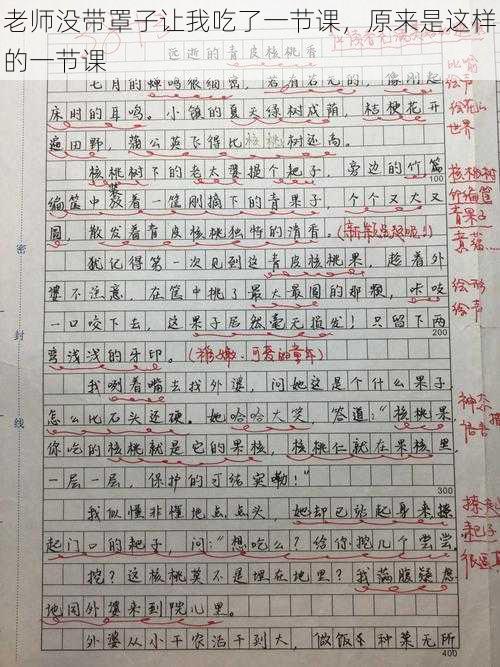 老师没带罩子让我吃了一节课，原来是这样
的一节课
远逝的青皮核桃香
七月的蝉鸣很细密，若有若无的，像刚起
床时的耳鸣。小镇的夏天绿树成荫，桔梗花开
遍田野，蒲公英飞得比核桃树还高。
核桃树下的老太婆摸个耙子，旁边的竹篇
100
编筐中装着一筐刚摘下的青果子，个个又大又
圆，散发着青皮核桃独特的清香。
犹记得第一次见到这青皮核桃果，趁着外
婆不注意，在筐中挑了最大最圆的那颗，咔咬
一口咬下去，这果子居然毫无损发！只留下两
200
弯浅浅的牙印。
我咧着嘴去找外婆，问她这是个什么果子
怎么比石头还硬。她哈哈大笑，答道："核桃果，
你吃的核桃就是它的果核，核桃仁就在果核里，
一层一层，保护的可结实嘞！"
300
我似懂非懂地点点头，她却已站起身来操
起门口的耙子，问："想吃么？给你挖几个尝尝。
挖？这核桃莫不是埋在地里？我满腹疑虑
地同外婆来到院儿里。
外婆从小干农活干到大，做饭和种菜无所
400
比喻
绘声
绘花山
世界
核桃树
竹编筐
青果子
绘形
绘声
神态
耙子
密
封
线